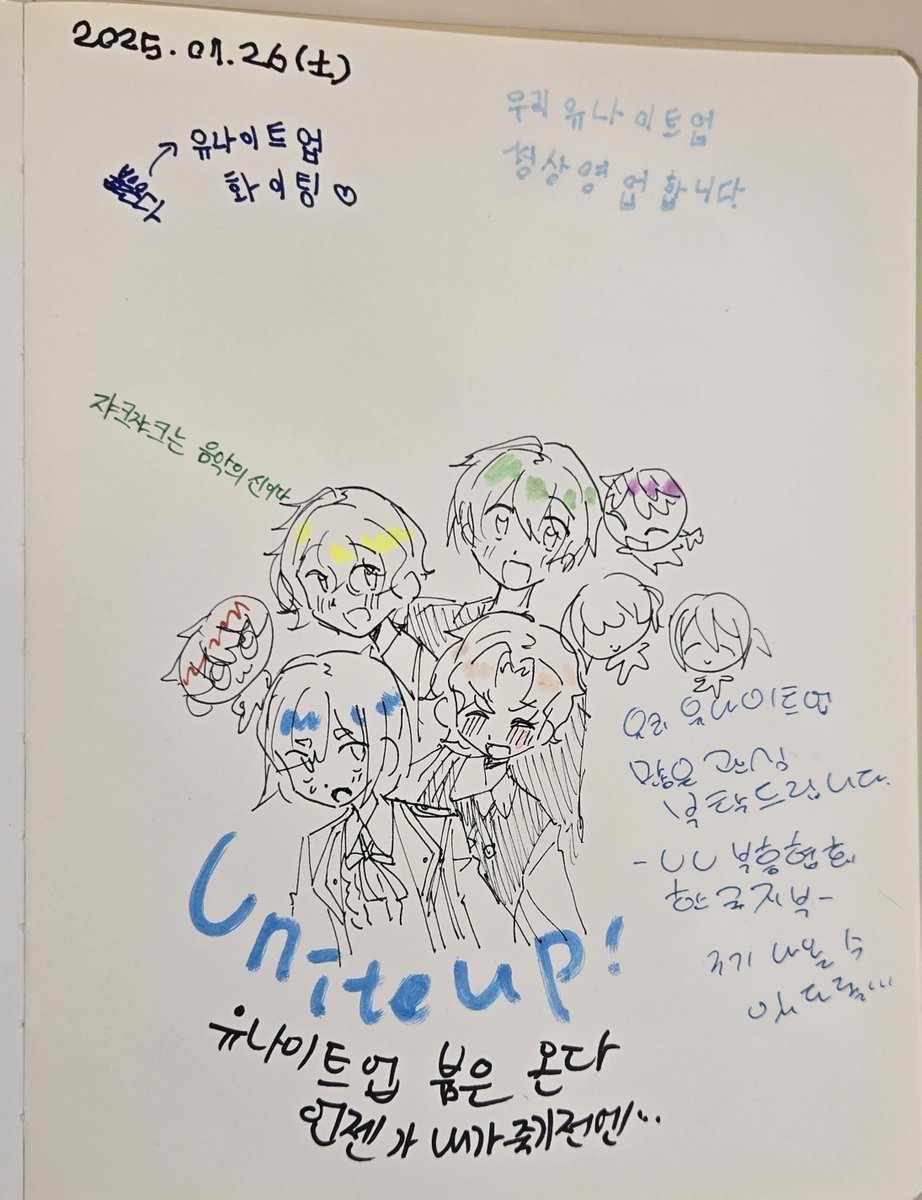 2025.07.26(土)
유나이트업
화이팅♡
우리 유나이트업
정상영업합니다
쟈크쟈크는 음악의 신이다
우리 유나이트업
많은 관심
부탁드립니다.
-UU 부흥협회
한국지부-
Unite up!
유나이트업 붐은 온다
언젠가 내가 죽기전엔...